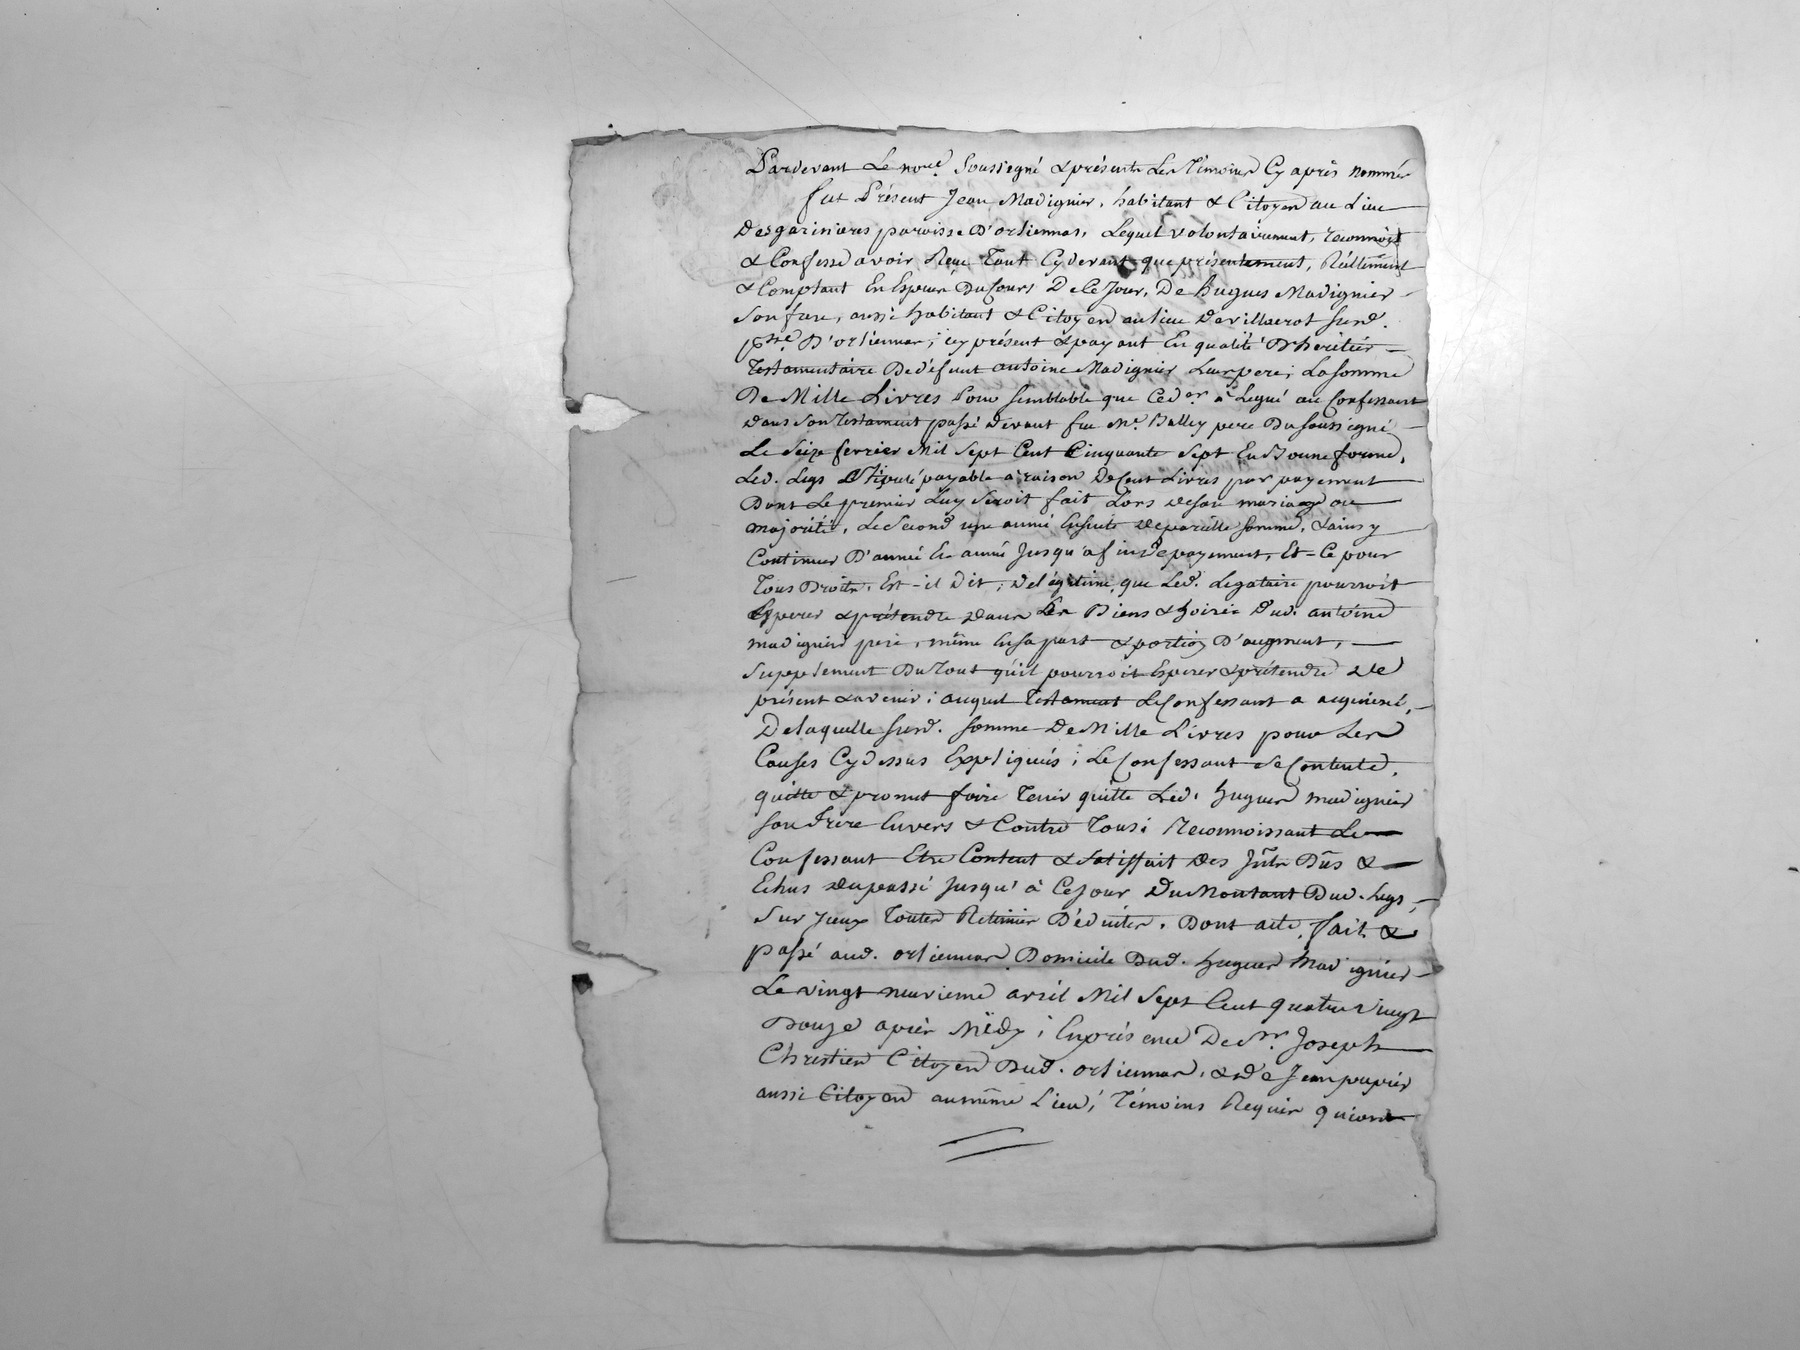 Pardevant Le nore. Soussigné & présents Les Témoins Cy après nommés
fut Présent Jean Madignier, habitant & Citoyen au Lieu
Desgarinieres paroisse D'orliennas, Lequel volontairement, reconnoit
& Confesse avoir Reçu Tant Cydevant que présentement, Réellement
& Comptant En Espèces Du Cours De Ce Jour, De hugues Madignier
Son frere, aussi habitant & Citoyen au lieu De villacrot susd.
psse. D'orliennas, icy présent & payant En qualité D'heritier
Testamentaire De défunt antoine Madignier Leur pere, La somme
De Mille Livres Pour semblable que Ced.er a Legué au Confessant
dans Son Testament passé devant feu Me. Balley pere Du soussigné
Le Seize fevrier Mil Sept Cent Cinquante Sept En Bonne forme,
Led. Legs Stipulé payable a raison De Cent Livres par payement
Dont Le premier Luy Seroit fait Lors de son mariage ou
majorité, Le Second une année Ensuite de pareille somme, & ainsy
Continuer D'année En année Jusqu'a fin de payement, Et Ce pour
Tous Droits, Est-il Dit, de légitime, que Led. Legataire pourroit
Esperer & prétendre dans Les Biens & hoirie Dud. antoine
madignier pere, même En sa part & portion D'augment,
Supplément Du Tout qu'il pourroit Esperer & prétendre De
présent & avenir; auquel Testament Le Confessant a acquiescé,
De laquelle susd. somme De Mille Livres pour Les
Causes Cydessus Expliqués; Le Confessant se Contente,
quitte & promet faire Tenir quitte Led. hugues madignier
son frere Envers & Contre Tous; Reconnoissant Le
Confessant Etre Content & Satisfait Des Jnts Dûs &
Echus du passé Jusqu'à Ce Jour Du Montant Dud. Legs,
Sur Jceux Toutes Retenues Déduites. Dont acte, fait &
passé aud. orliennas Domicile Dud. hugues Madignier
Le vingt neuvieme avril Mil Sept Cent quatre vingt
Douze après Midy; En présence De Sr. Joseph
Chrestien Citoyen Dud. orliennas, & de Jean papier
aussi Citoyen au même Lieu, Témoins Requis qui ont